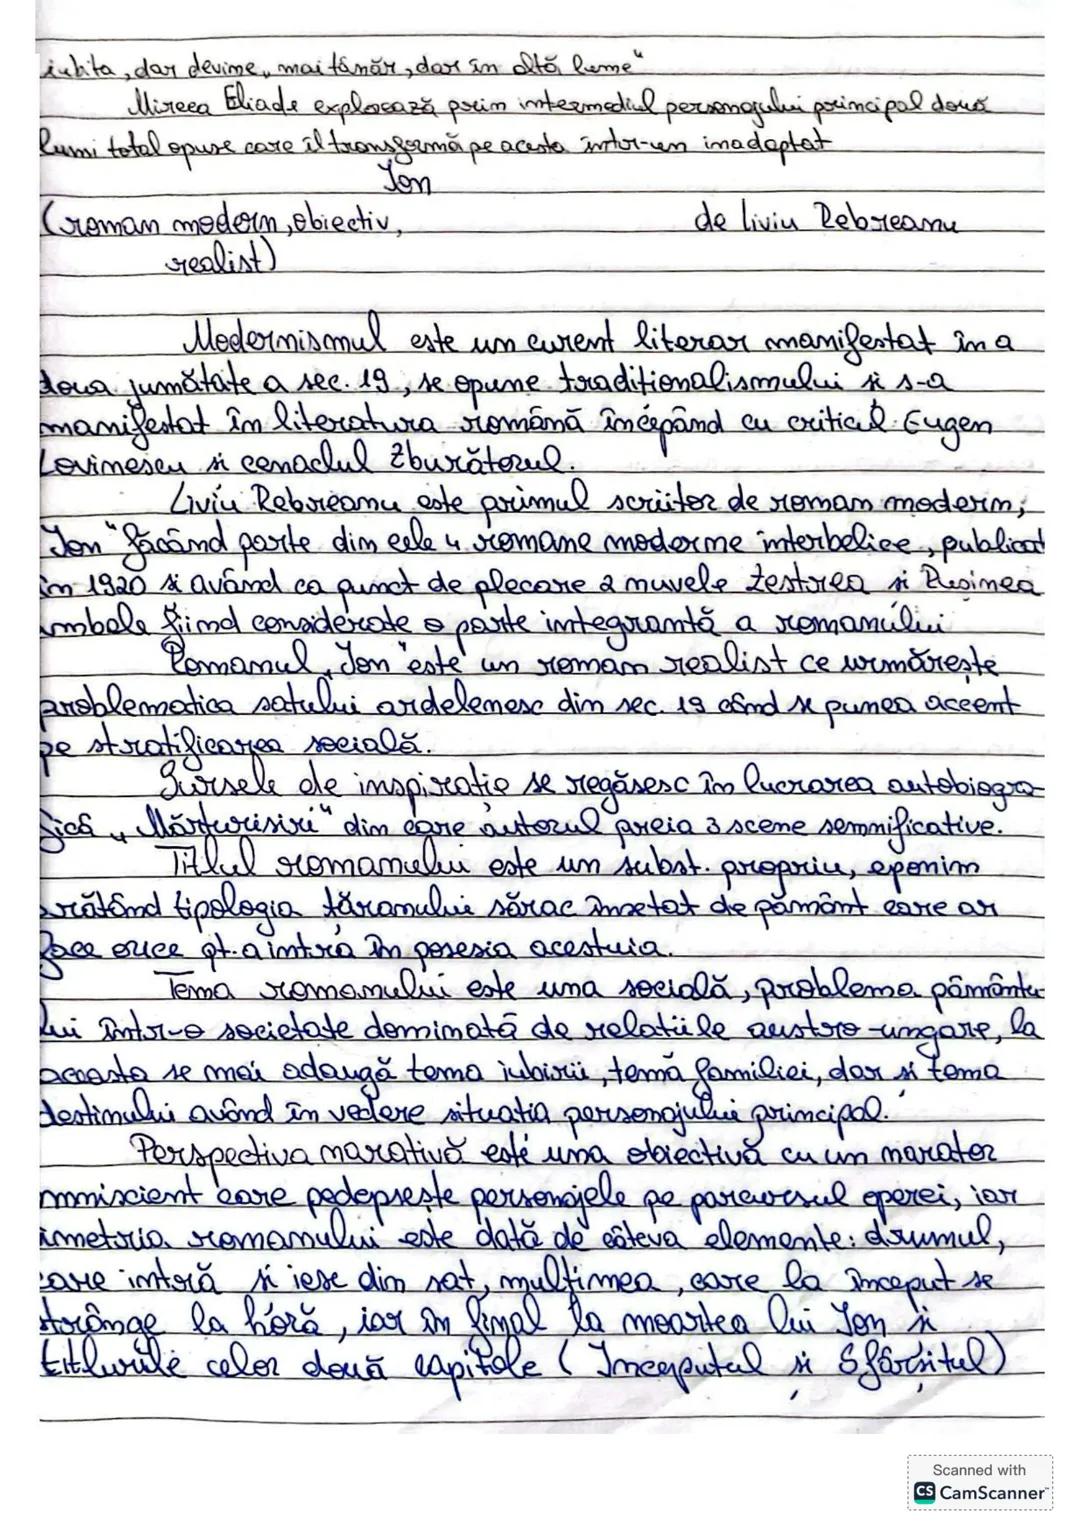 iubita, dar devine „mai tânăr, dar în altă lume"
Mircea Eliade explorează prin intermediul personajului principal două
lumi total opuse care îl transformă pe acesta într-un inadaptat
Ion
(roman modern, obiectiv, de Liviu Rebreanu
realist)
Modernismul este un curent literar manifestat în a
doua jumătate a sec. 19, se opune tradiționalismului și s-a
manifestat în literatura română începând cu criticul Eugen
Lovinescu și cenaclul Zburătorul.
Liviu Rebreanu este primul scriitor de roman modern,
Ion" făcând parte din cele 4 romane moderne interbelice, publicat
în 1920 și având ca punct de plecare 2 nuvele Zestrea și Rușinea
ambele fiind considerate o parte integrantă a romanului
Romanul „Ion" este un roman realist ce urmărește
problematica satului ardelenesc din sec. 19 când se punea accent
pe stratificarea socială.
Sursele de inspirație se regăsesc în lucrarea autobiogra-
fică „Mărturisiri" din care autorul preia 3 scene semnificative.
Titlul romanului este un subst. propriu, eponim
arătând tipologia țăranului sărac însetat de pământ care ar
face orice pt. a intra în posesia acestuia.
Tema romanului este una socială, problema pământu-
lui într-o societate dominată de relatiile austro-ungare, la
aceasta se mai adaugă tema iubirii, tema familiei, dar și tema
destinului având în vedere situatia personajului principal.
Perspectiva narativă este una obiectivă cu un narator
omniscient care pedepsește personajele pe parcursul operei, iar
simetria romanului este dată de câteva elemente: drumul,
care intră și iese din sat, mulțimea, care la început se
strânge la horă, iar în final la moartea lui Ion și
titlurile celor două capitole (Începutul și Sfârșitul)
Scanned with
CS CamScanner